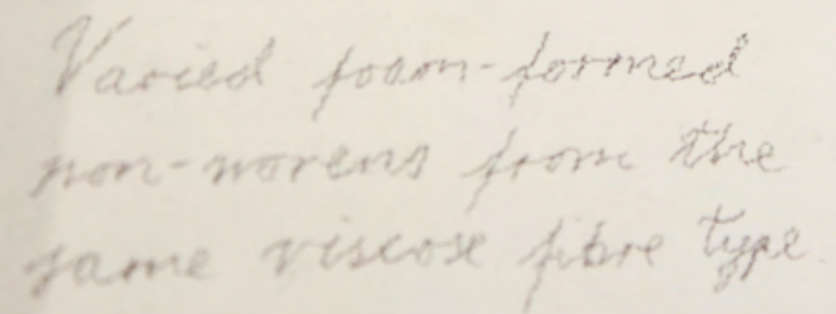 Varied foam-formed
non-wovens from the
same viscose fibre type